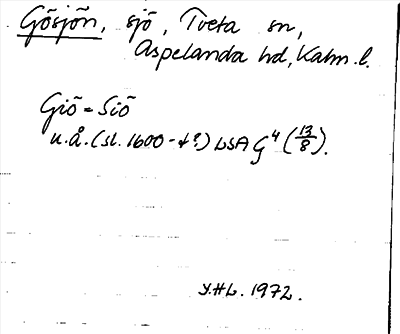 Gösjön, sjö, Tveta sn,
Aspelands hd, Kalm. l.
Giö = Siö
u.å. (sl. 1600-t?) LSA G4 (13/8).
Y.HL. 1972.